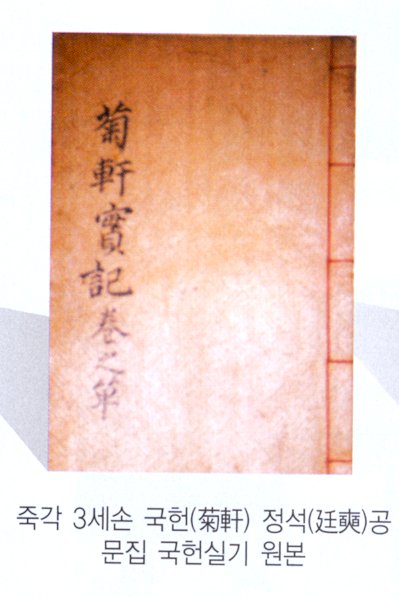 菊軒實記卷之
죽각 3세손 국헌(菊軒) 정석(廷奭)공
문집 국헌실기 원본